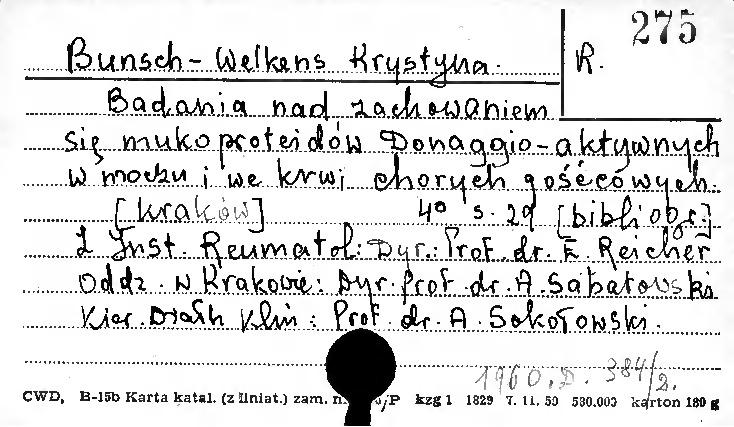 275
Bunsch-Welkens Krystyna. R.
Badania nad zachowaniem
się mukoproteidów Donaggio-aktywnych
w moczu i we krwi chorych gośćcowych.
[Kraków] 4° s. 29 [bibliogr.]
Z Inst. Reumatol: Dyr.: Prof. dr. E. Reicher
Oddz. w Krakowie: Dyr. prof. dr. A. Sabatowski
Kier. Działu Klin: Prof. dr. A. Sokołowski.
1960.D. 384/2.
CWD, B-15b Karta katal. (z liniat.) zam. /P kzg 1 1829 7. 11. 50 580.000 karton 180 g